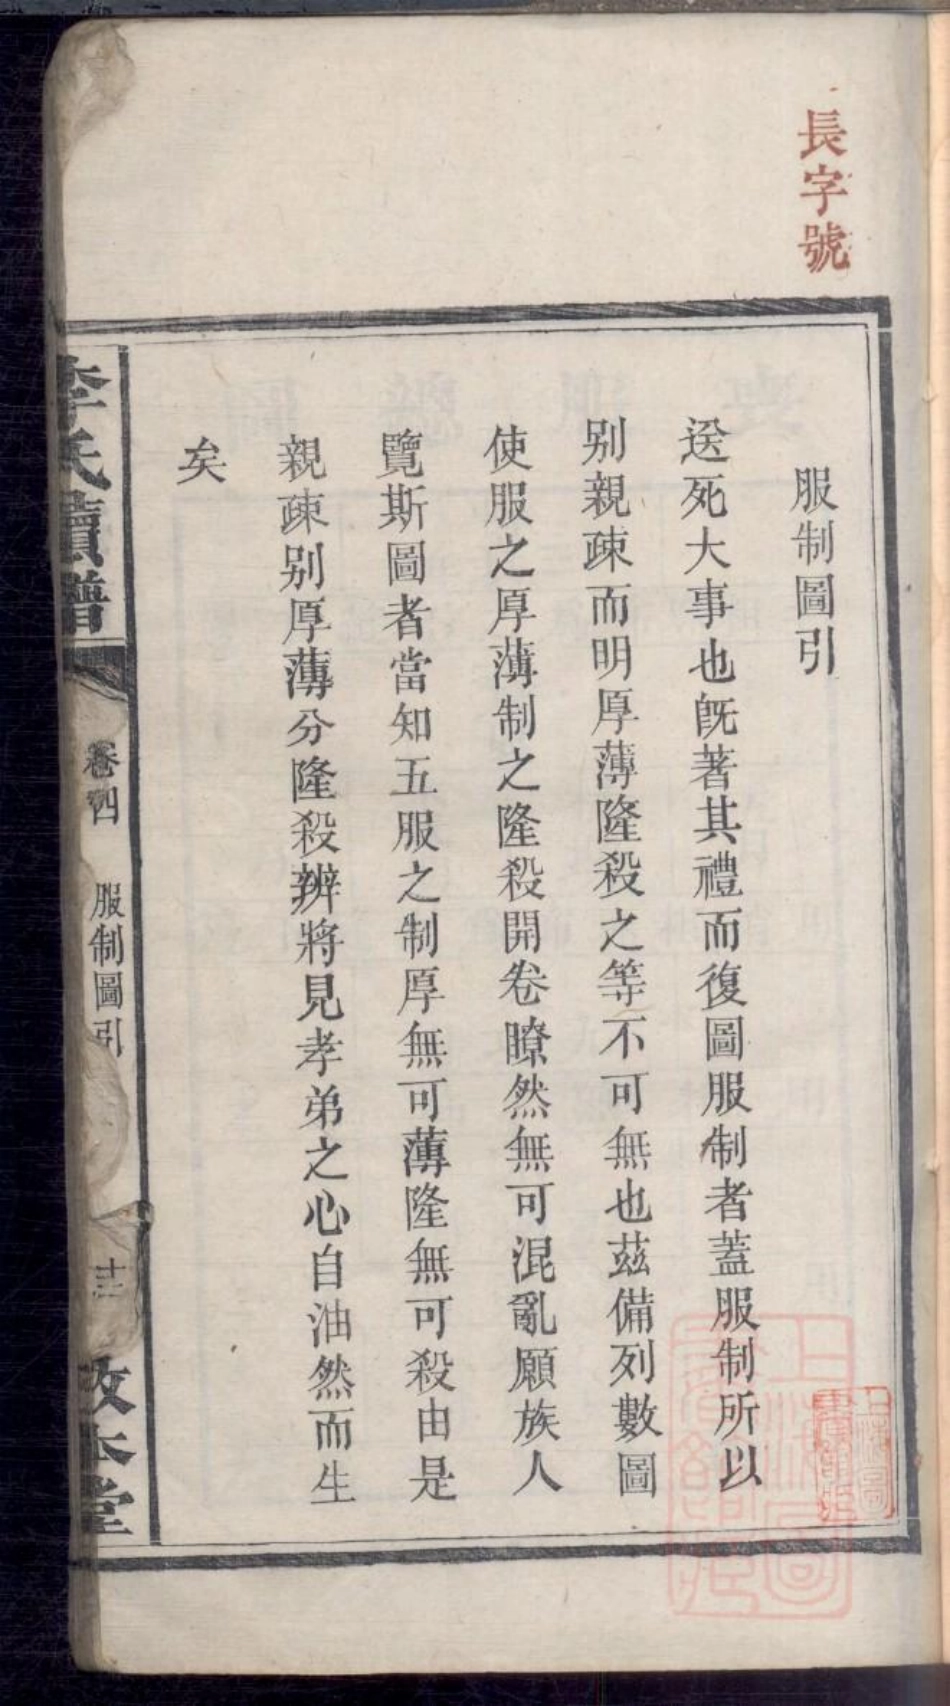 長字號
服制圖引
送死大事也旣著其禮而復圖服制者蓋服制所以
别親疎而明厚薄隆殺之等不可無也茲備列數圖
使服之厚薄制之隆殺開卷瞭然無可混亂願族人
覽斯圖者當知五服之制厚無可薄隆無可殺由是
親疎别厚薄分隆殺辨將見孝弟之心自油然而生
矣
李氏續譜
卷四
服制圖引
敦本堂
上海圖書館藏
上海圖書館藏